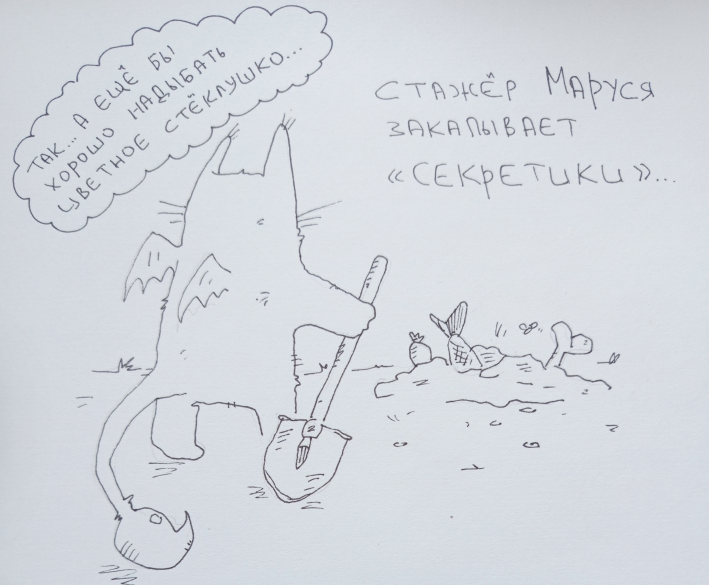 ТАК... А ЕЩЁ БЫ
ХОРОШО НАДЫБАТЬ
ЦВЕТНОЕ СТЁКЛУШКО...
СТАЖЁР МАРУСЯ
ЗАКАПЫВАЕТ
«СЕКРЕТИКИ»...